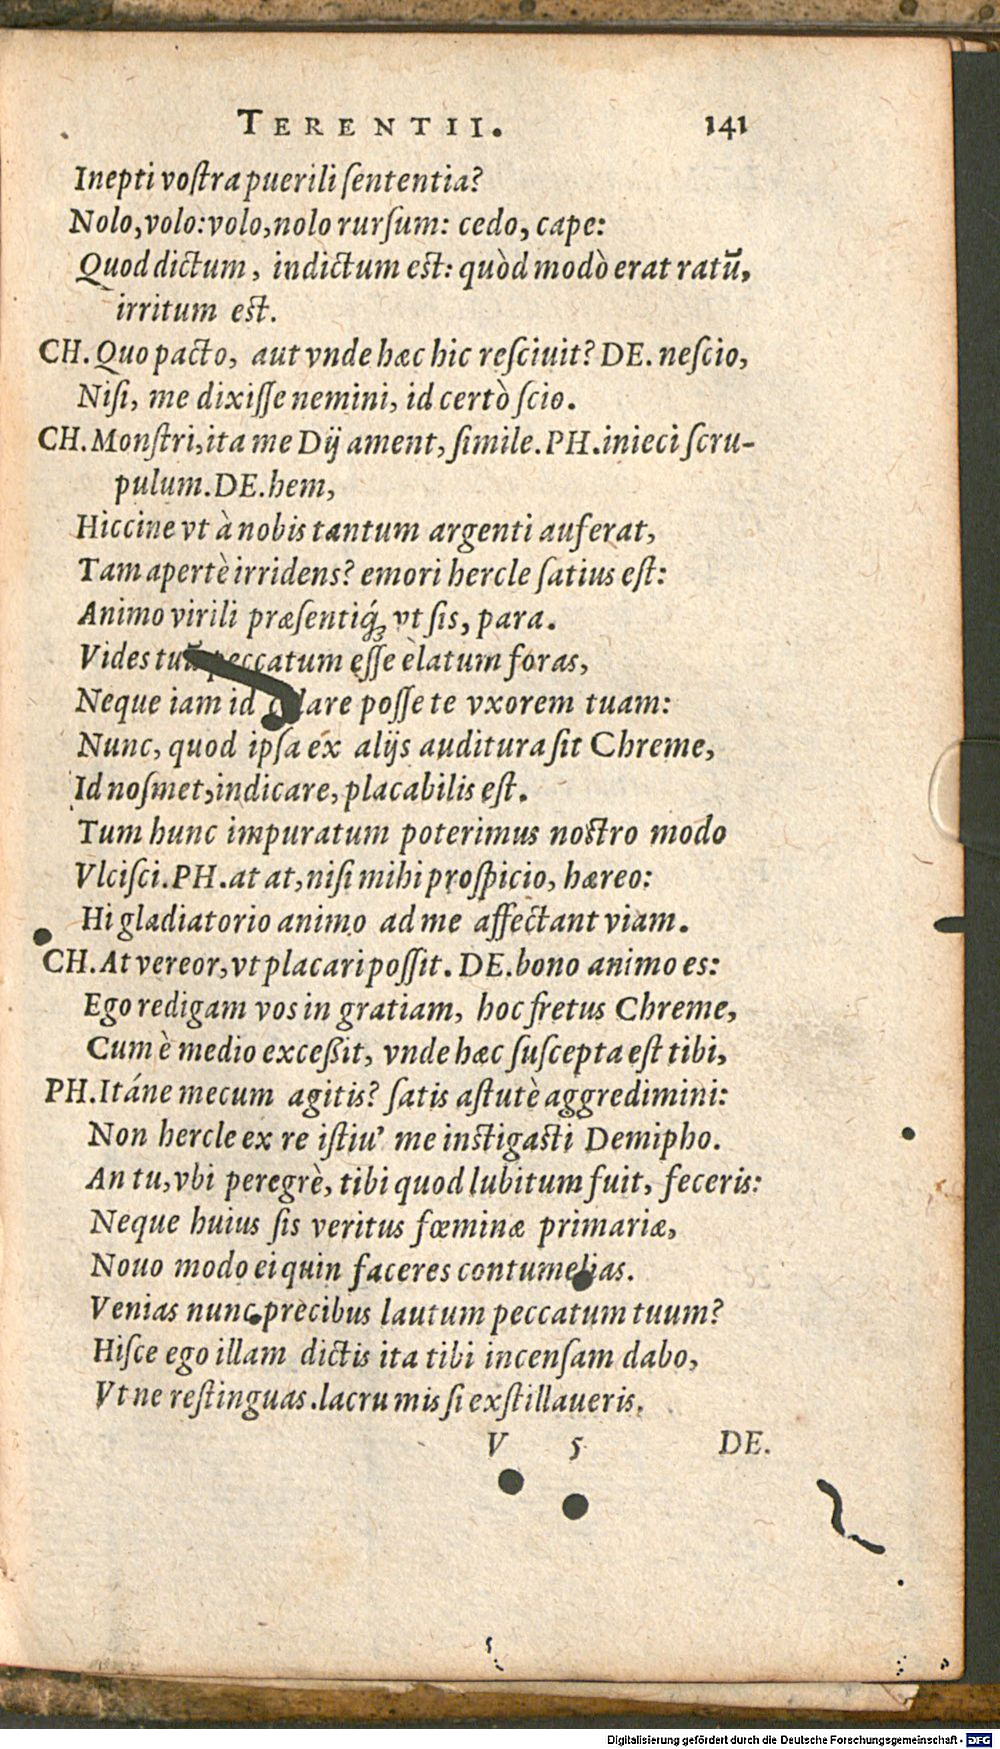 TERENTII. 141
Inepti voſtra puerili ſententia?
Nolo, volo: volo, nolo rurſum: cedo, cape:
Quod dictum, indictum est: quòd modò erat ratũ,
irritum est.
CH. Quo pacto, aut vnde hæc hic reſciuit? DE. neſcio,
Niſi, me dixiſſe nemini, id certò ſcio.
CH. Monſtri, ita me Dij ament, ſimile. PH. inieci ſcru-
pulum. DE. hem,
Hiccine vt à nobis tantum argenti auferat,
Tam apertè irridens? emori hercle ſatius eſt:
Animo virili præſentiq́; vt ſis, para.
Vides tuũ peccatum eſſe èlatum foras,
Neque iam id celare poſſe te vxorem tuam:
Nunc, quod ipſa ex alijs auditura ſit Chreme,
Id noſmet, indicare, placabilis eſt.
Tum hunc impuratum poterimus nostro modo
Vlciſci. PH. at at, niſi mihi proſpicio, hæreo:
Hi gladiatorio animo ad me affectant viam.
CH. At vereor, vt placari poſſit. DE. bono animo es:
Ego redigam vos in gratiam, hoc fretus Chreme,
Cum è medio exceßit, vnde hæc ſuſcepta eſt tibi,
PH. Itáne mecum agitis? ſatis aſtutè aggredimini:
Non hercle ex re iſtiu' me instigasti Demipho.
An tu, vbi peregrè, tibi quod lubitum fuit, feceris:
Neque huius ſis veritus fœminæ primariæ,
Nouo modo ei quin faceres contumelias.
Venias nunc precibus lautum peccatum tuum?
Hiſce ego illam dictis ita tibi incenſam dabo,
Vt ne reſtinguas. lacrumis ſi exſtillaueris.
V 5 DE.
Digitalisierung gefördert durch die Deutsche Forschungsgemeinschaft - DFG